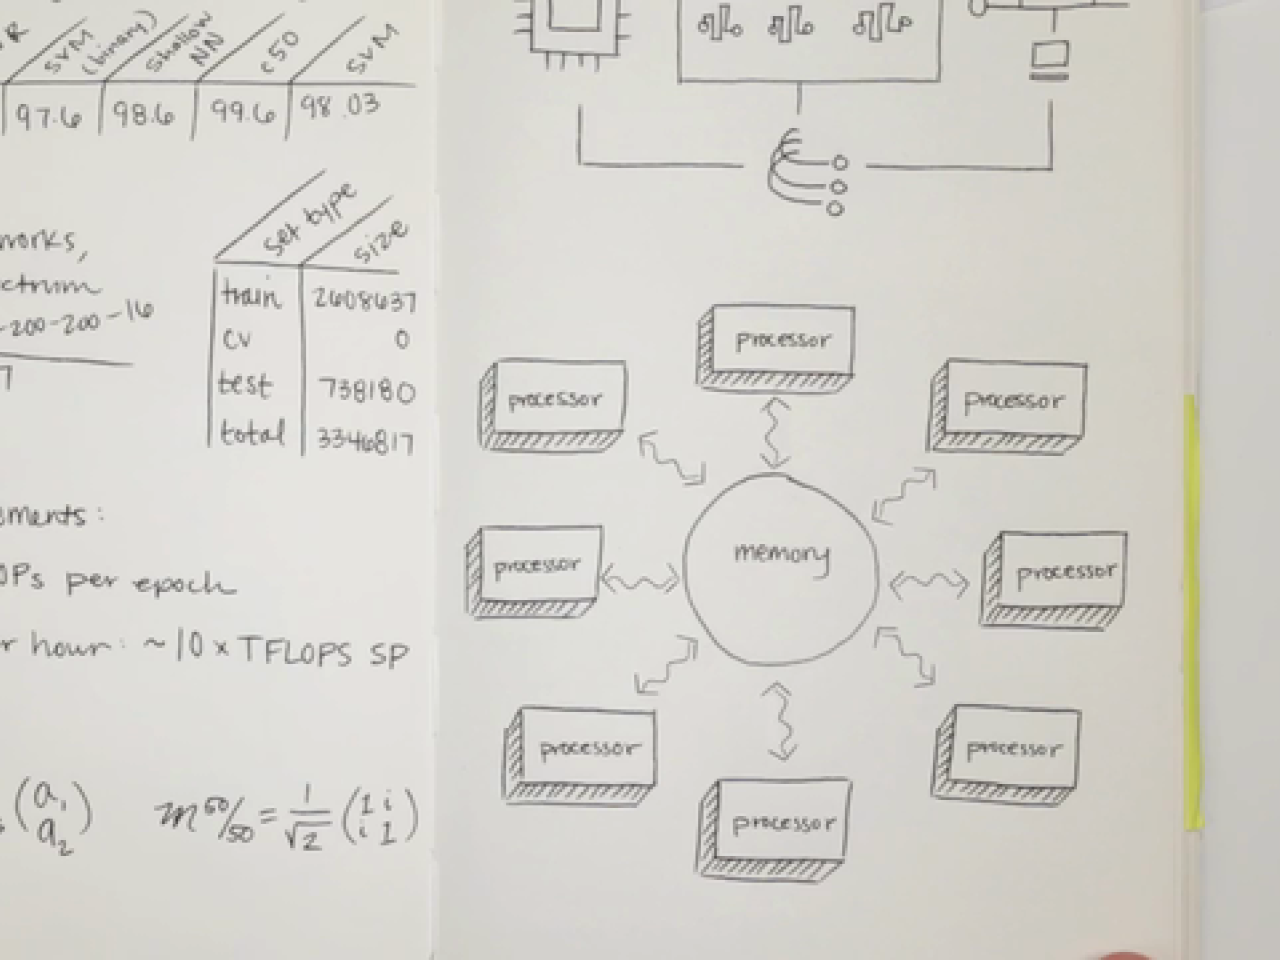 R
SVM (binary)
Shallow NN
c50
SVM
97.6 98.6 99.6 98.03
set type size
train 2608637
cv 0
test 738180
total 3346817
works,
ctrum
-200-200-16
7
ements:
OPs per epoch
r hour: ~10 x TFLOPS SP
(a₁
a₂)
m⁵⁰/₅₀ = 1/√2 (1 i
i 1)
processor
processor
processor
processor
memory
processor
processor
processor
processor